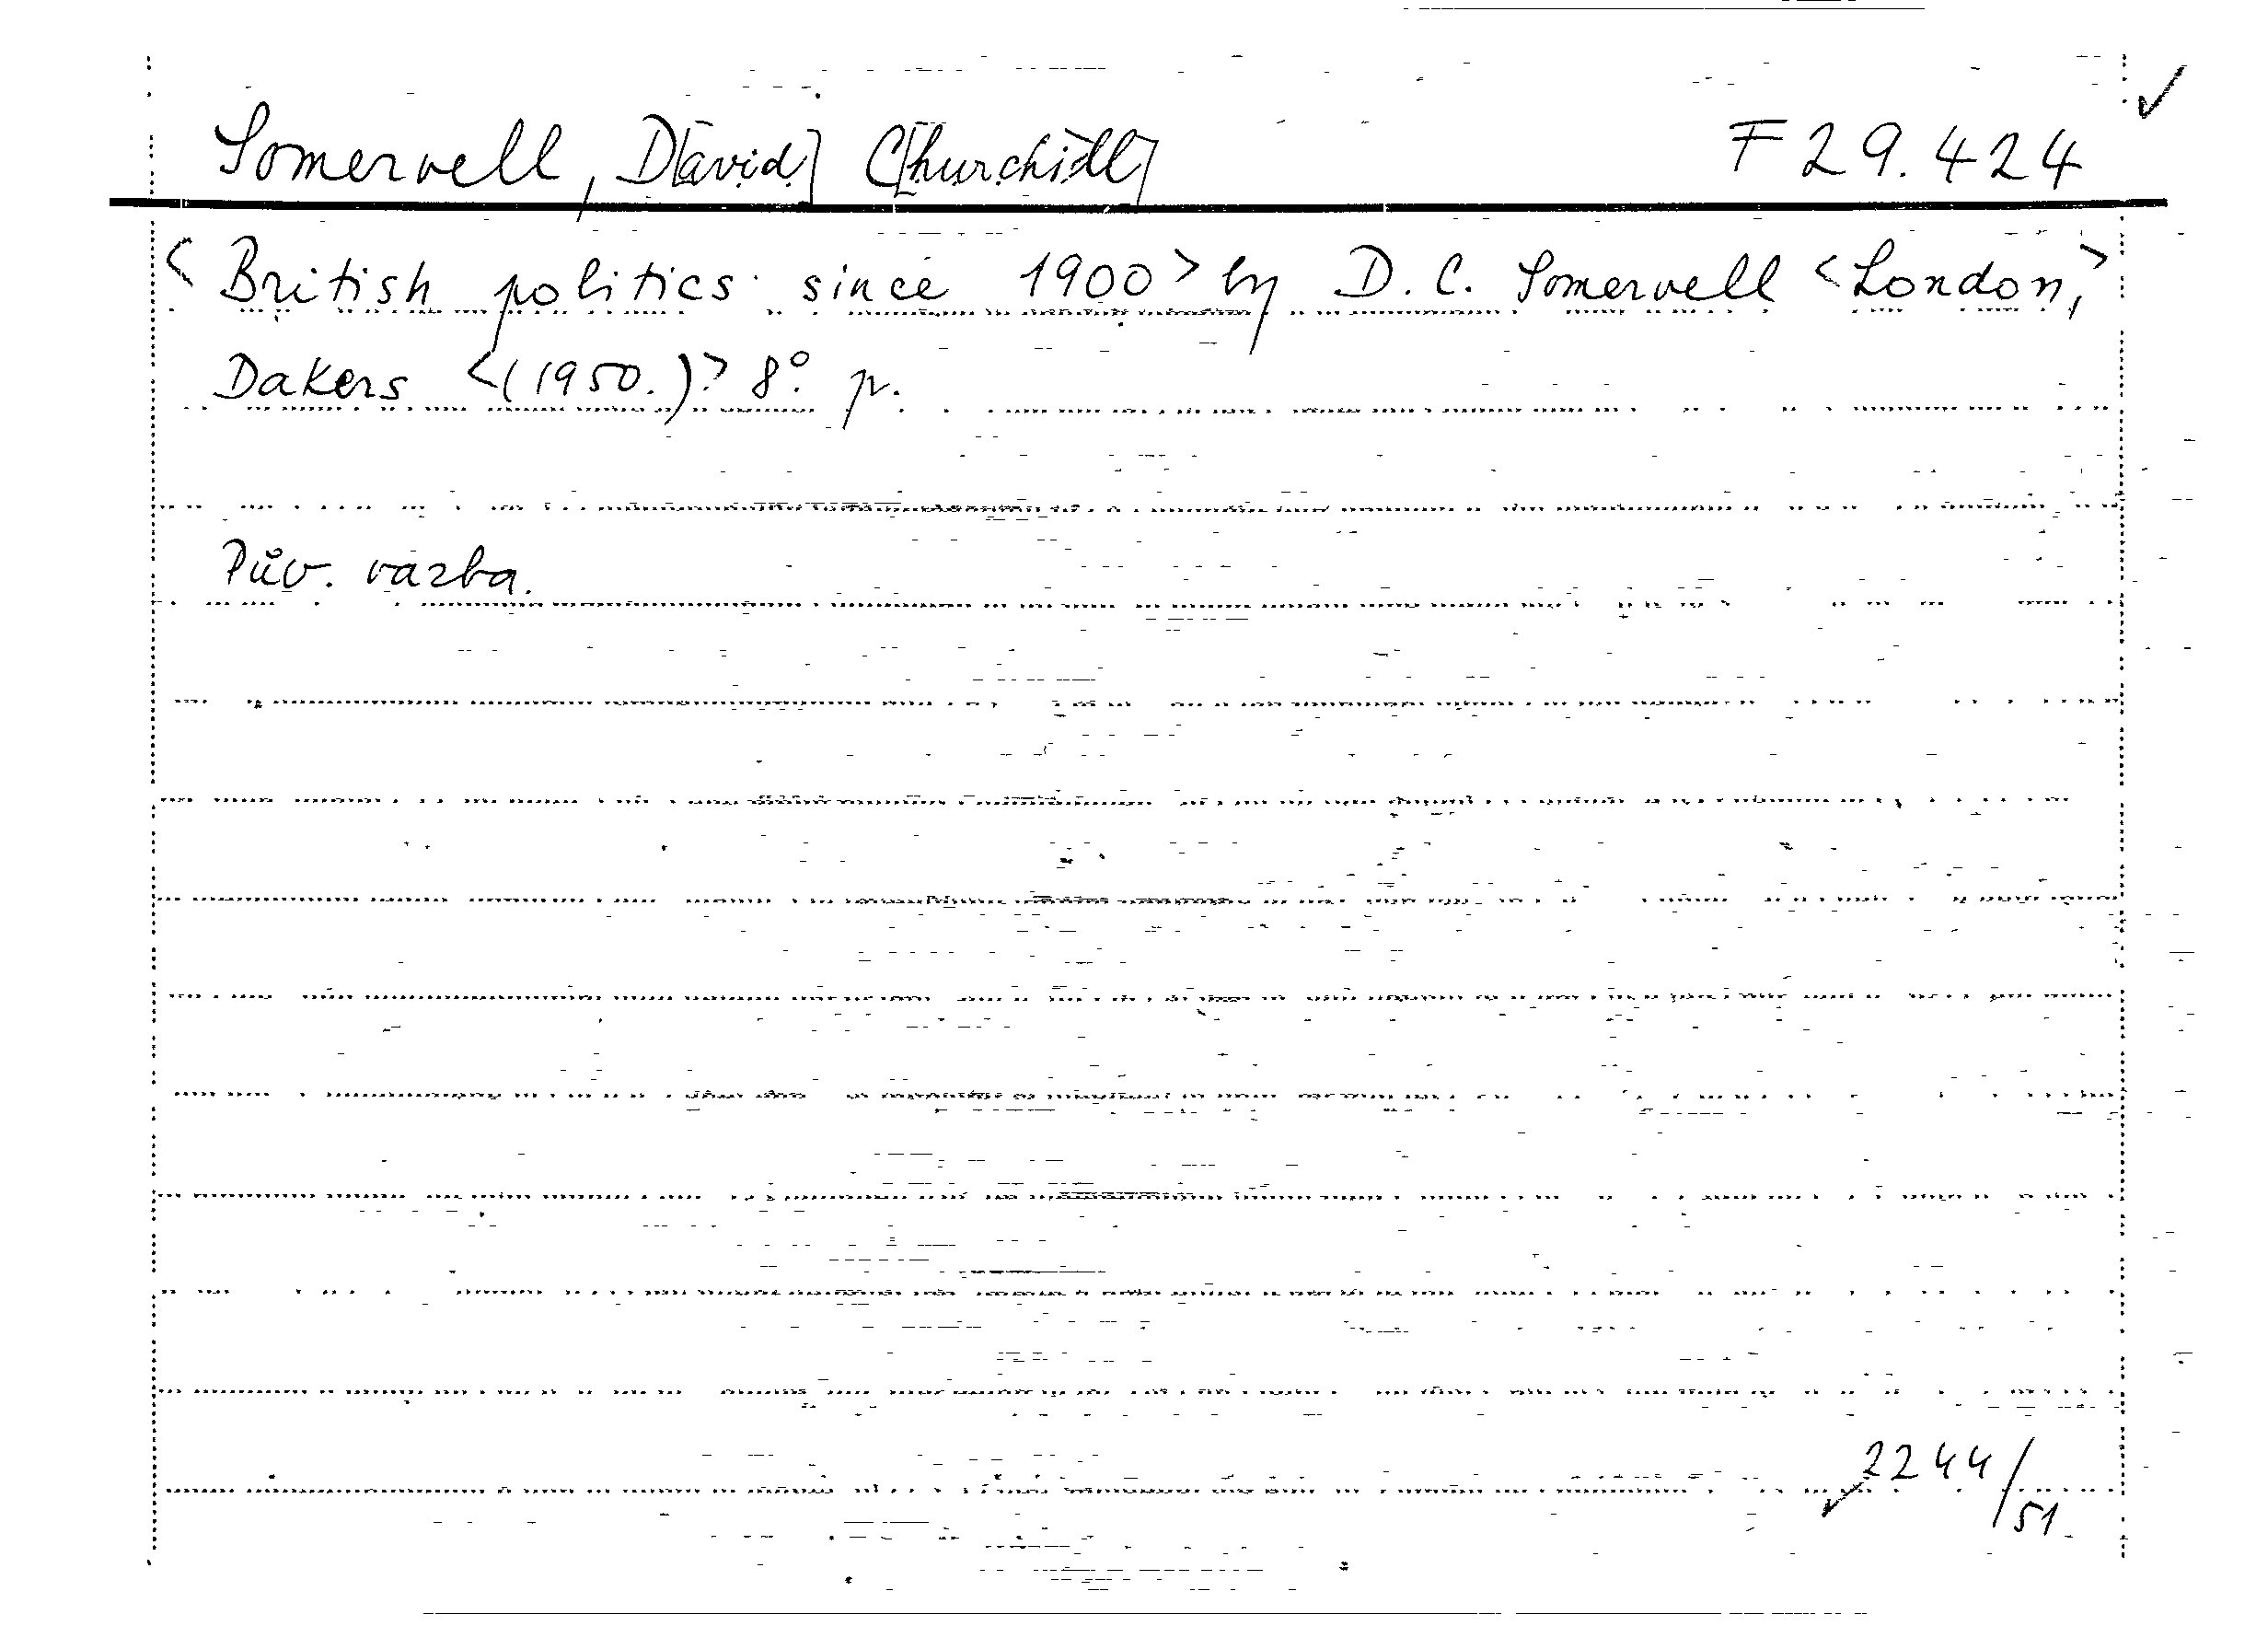 Somervell, D[avid] C[hurchill] F 29.424 ✓
<British politics since 1900> by D. C. Somervell <London,>
Dakers <(1950.)> 8° p.
Pův. vazba.
✓2244/51.